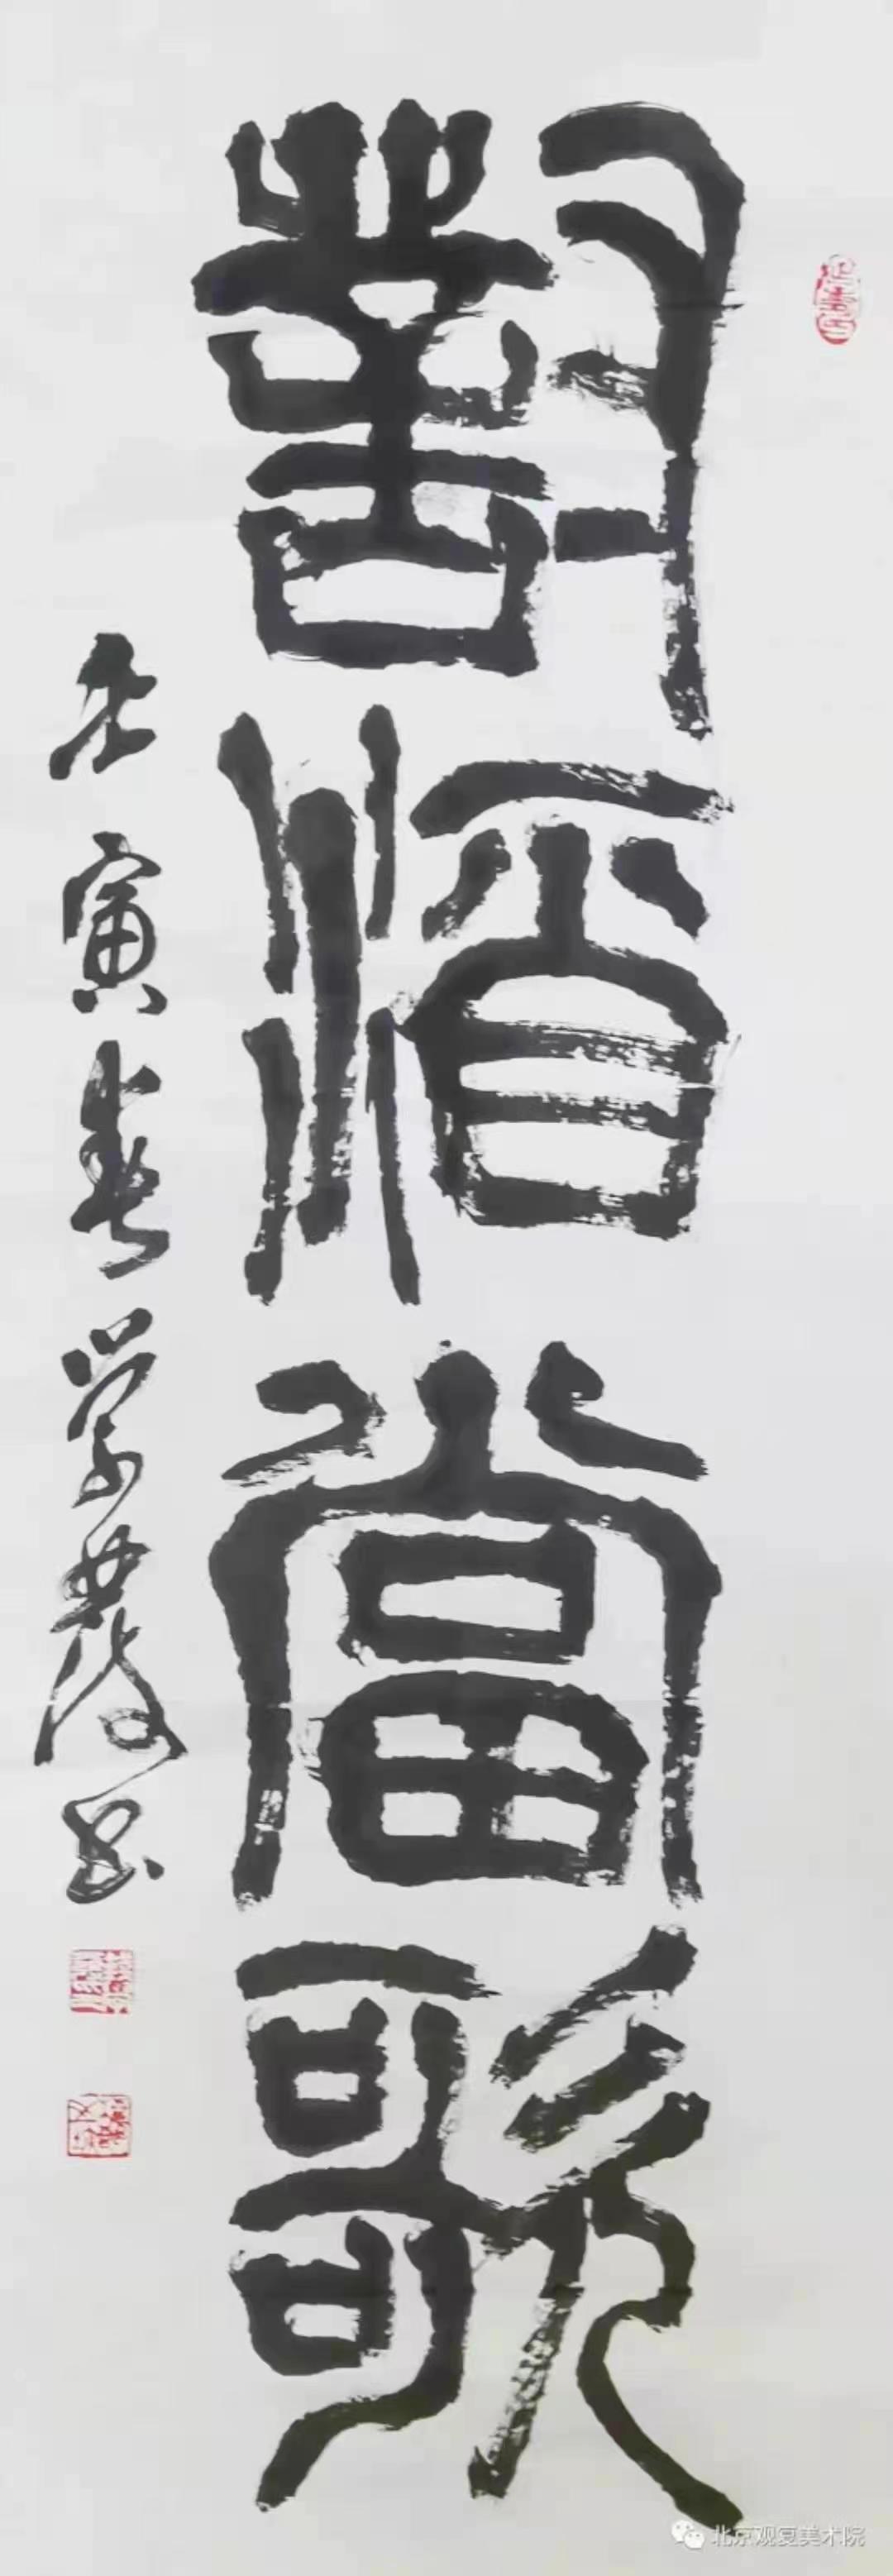 對酒當歌
壬寅春学书
北京观复美术院